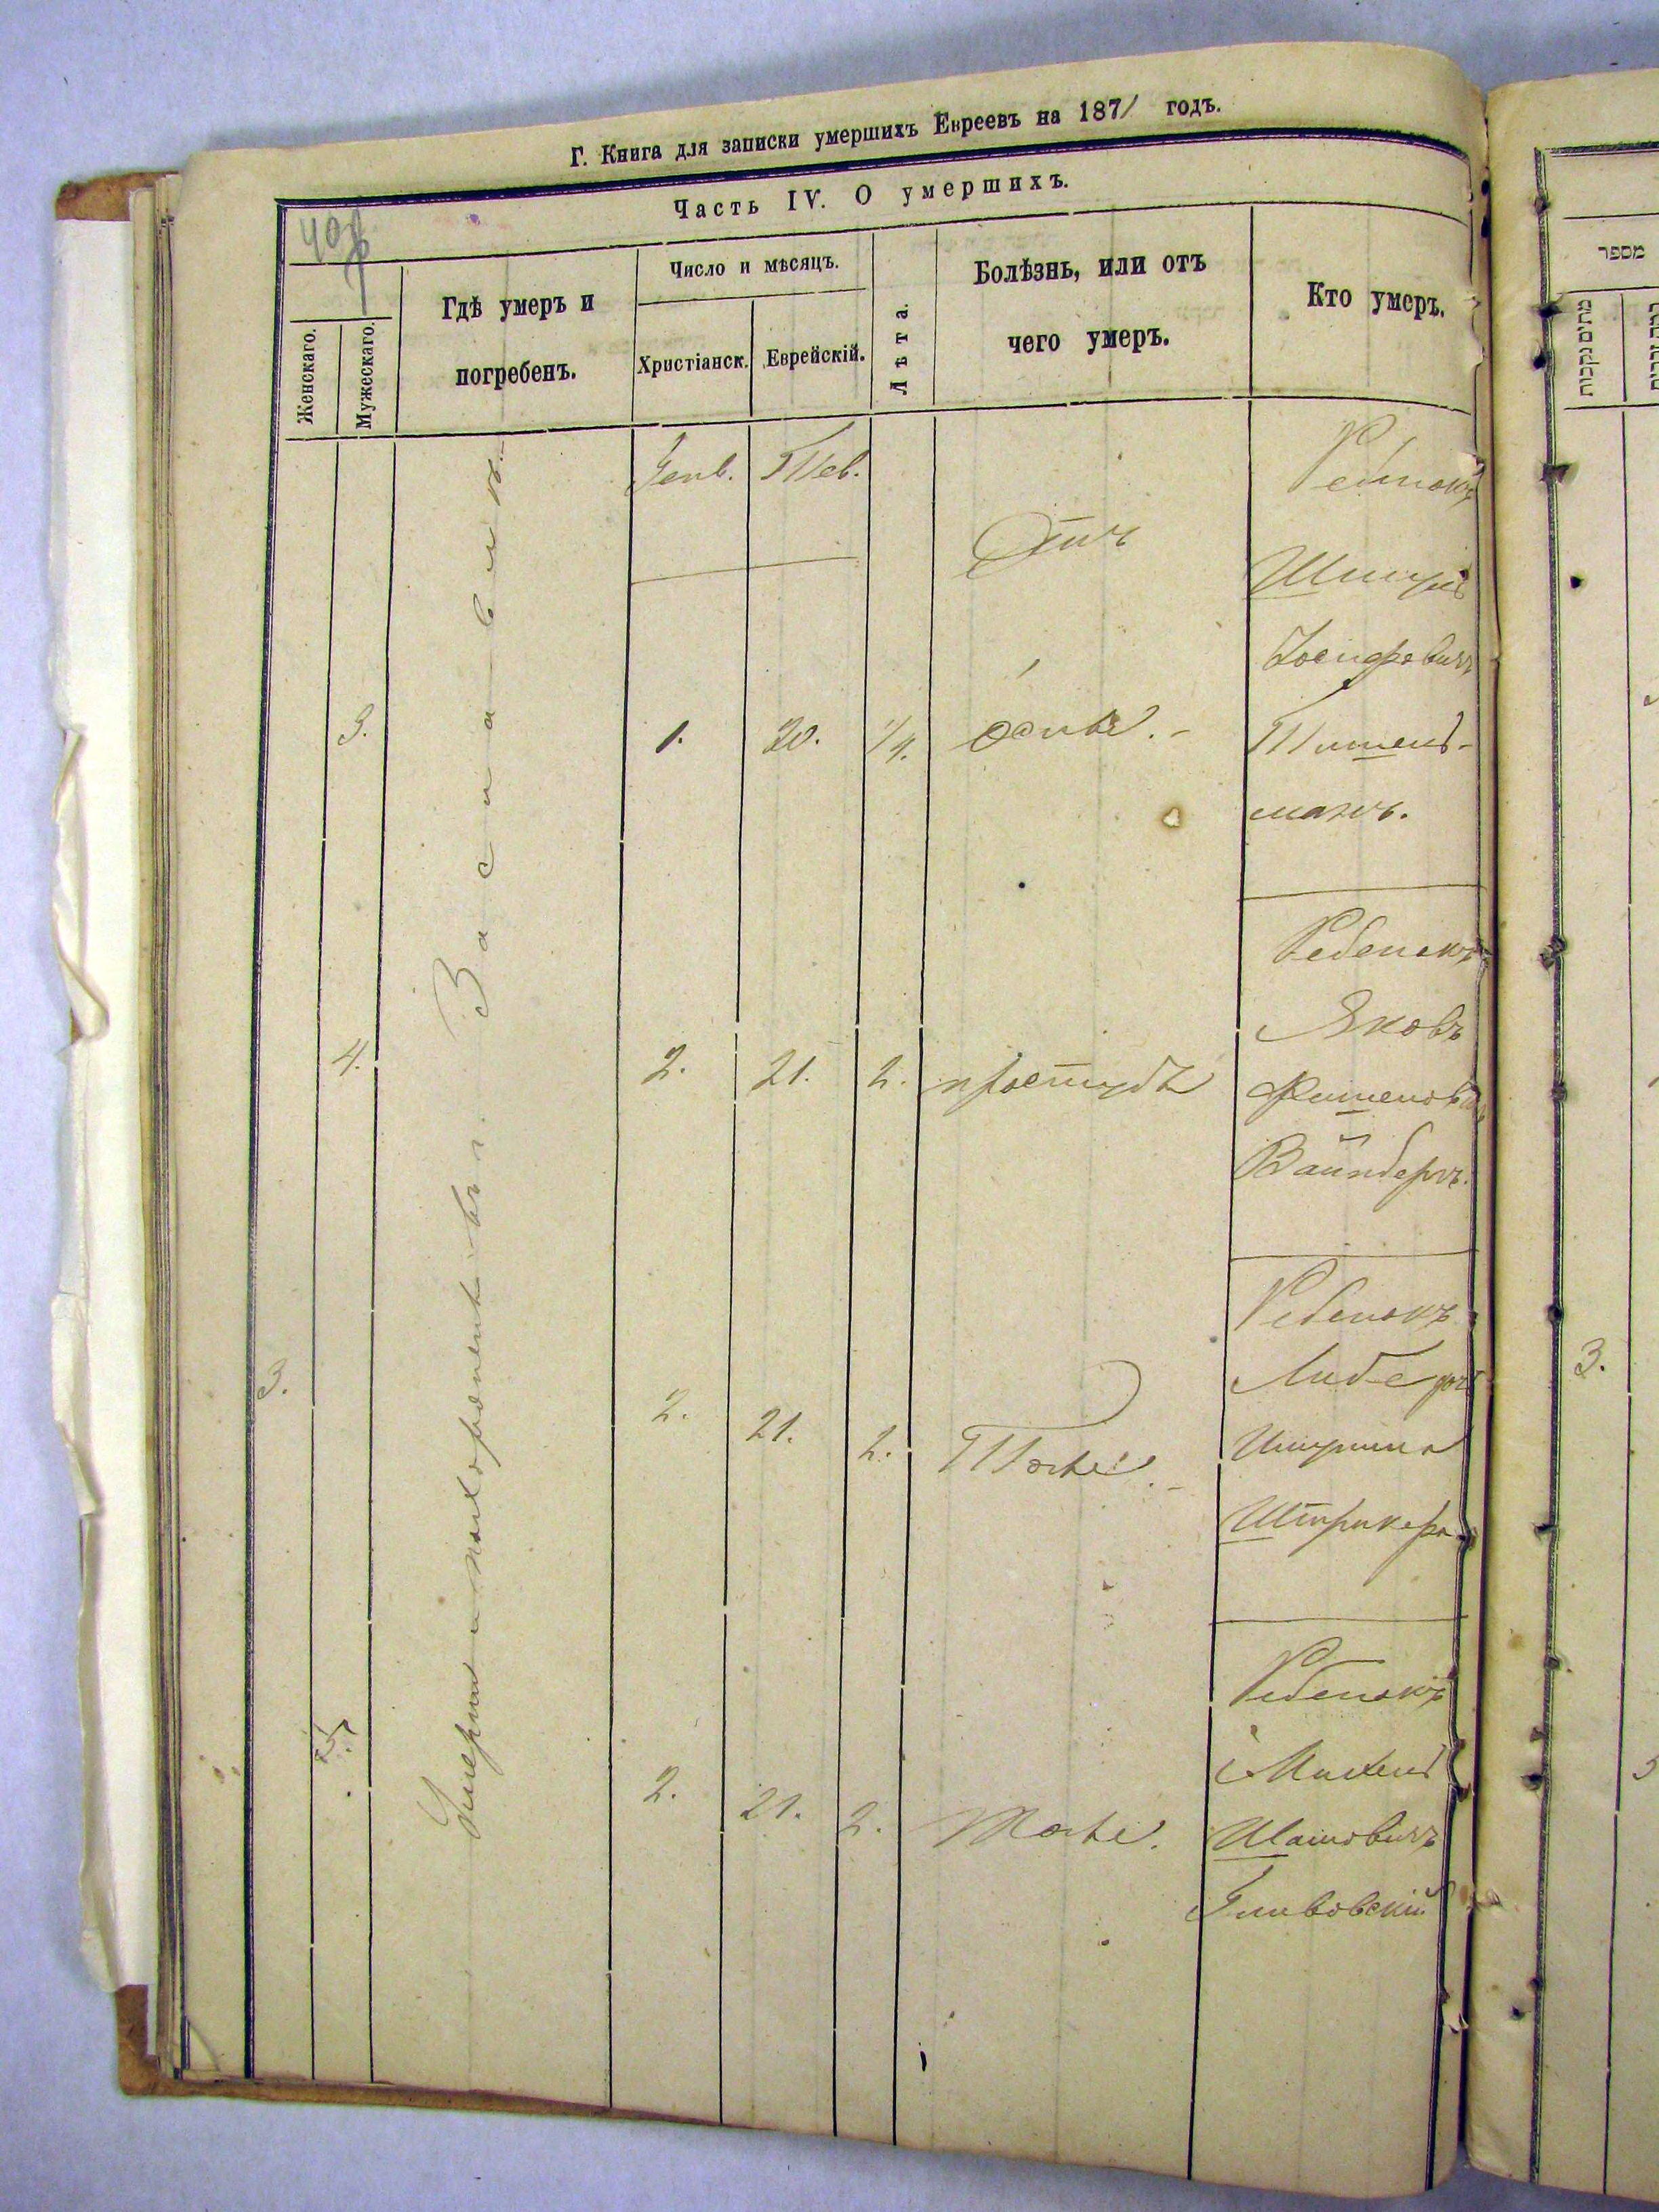 Г. Книга для записки умершихъ Евреевъ на 1871 годъ.
Часть IV. О умершихъ.
Женскаго.
Мужескаго.
Гдѣ умеръ и
погребенъ.
Число и мѣсяцъ.
Христіанск.
Еврейскій.
Лѣта.
Болѣзнь, или отъ
чего умеръ.
Кто умеръ.
Генв. Тев.
Отъ
Ребенокъ
Іосифовичъ
3. 1. 20. 1/4. оспы.
манъ.
Ребенокъ
Яковъ
4. 2. 21. 2. простуды
Вайнбергъ.
Ребенокъ
3. 2. 21. 2. Тоже.
Штрикера
Ребенокъ
5. 2. 21. 2. Тоже.
Умерли и похоронены въ г. Заславлѣ.
מספר
מתים נקבות
3.